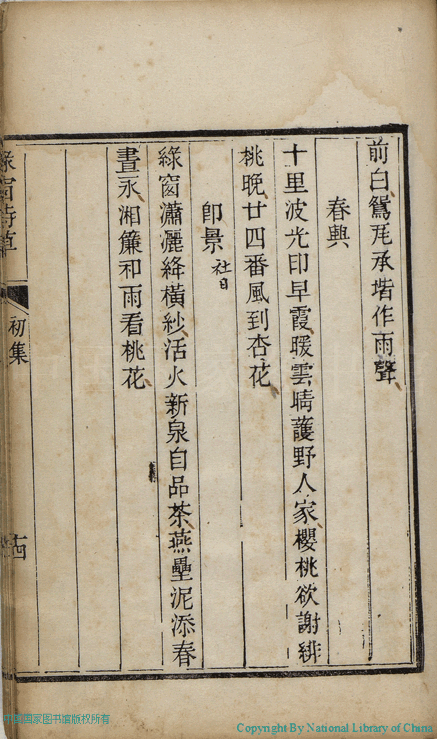 前白鴛鴦瓦承堦作雨聲
春興
十里波光印早霞暖雲晴護野人家櫻桃欲謝緋
桃晚廿四番風到杏花
即景 社日
綠窗瀟灑絳橫紗活火新泉自品茶燕壘泥添春
晝永湘簾和雨看桃花
綠窗詩草
初集
古
中国国家图书馆版权所有
Copyright By National Library of China